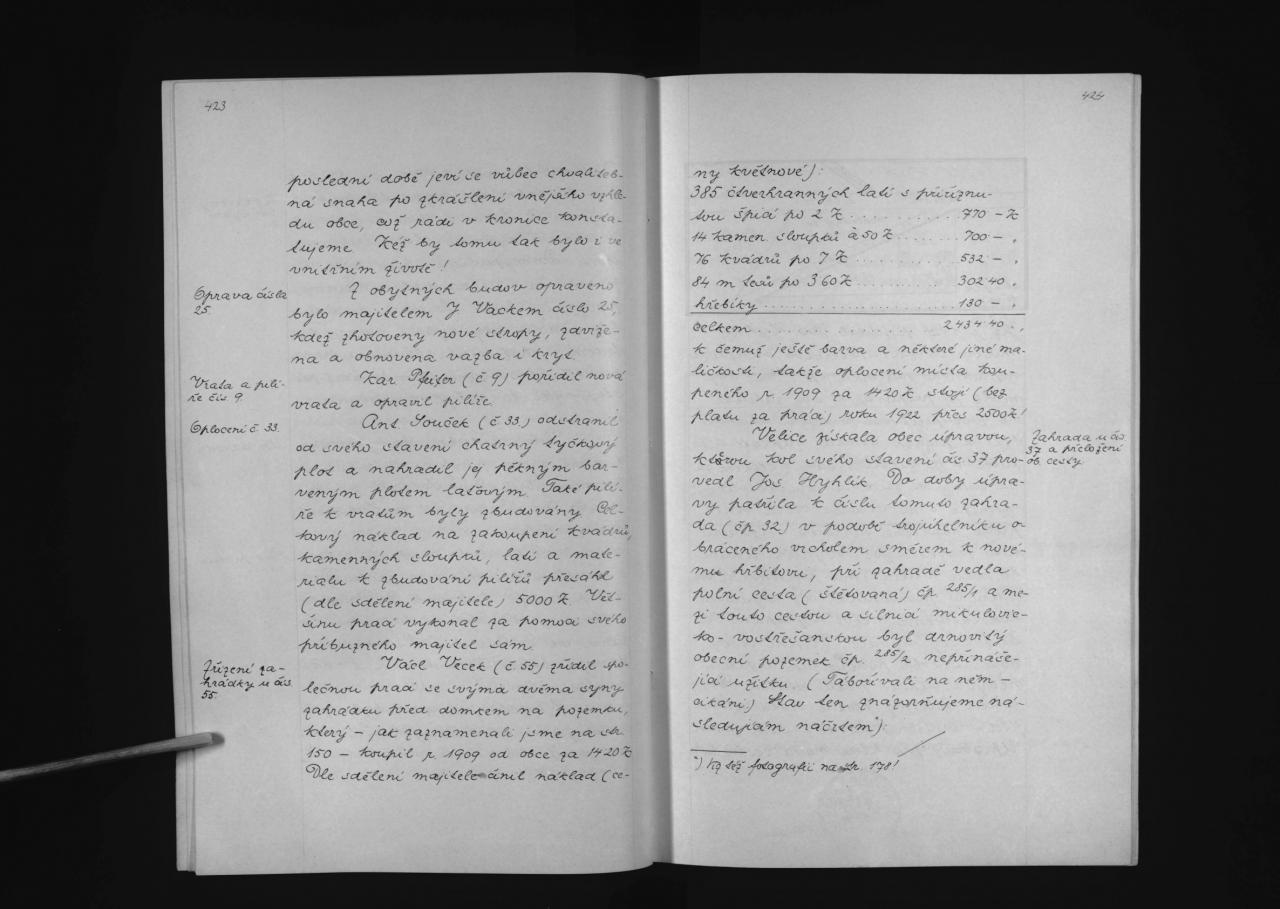 423
poslední době jeví se vůbec chvaliteb-
ná snaha po zkrášlení vnějšího vzhle-
du obce, což rádi v kronice konsta-
tujeme. Kéž by tomu tak bylo i ve
vnitřním životě!
Oprava čísla
25.
Z obytných budov opraveno
bylo majitelem J. Vackem číslo 25,
kdež zhotoveny nové stropy, zdviže-
na a obnovena vazba i kryt.
Vrata a pilí-
ře čís. 9.
Kar. Pfeifer (č. 9) pořídil nová
vrata a opravil pilíře.
Oplocení č. 33.
Ant. Souček (č. 33.) odstranil
od svého stavení chatrný tyčkový
plot a nahradil jej pěkným bar-
veným plotem laťovým. Také pilí-
ře k vratům byly zbudovány. Cel-
kový náklad na zakoupení kvádrů,
kamenných sloupků, latí a mate-
rialu k zbudování pilířů přesáhl
(dle sdělení majitele) 5000 K. Vět-
šinu prací vykonal za pomoci svého
příbuzného majitel sám.
Zřízení za-
hrádky u čís.
55.
Václ. Vecek (č. 55) zřídil spo-
lečnou prací se svýma dvěma syny
zahrádku před domkem na pozemku,
který – jak zaznamenali jsme na str.
150 – koupil r. 1909 od obce za 1420 K.
Dle sdělení majitele činil náklad (ce-
424
ny květnové):
385 čtverhranných latí s přiříznu-
tou špicí po 2 K ........... 770 – K
14 kamen. sloupků à 50 K ....... 700 – „
76 kvádrů po 7 K .......... 532 – „
84 m tesů po 3.60 K ......... 302.40 „
hřebíky ................... 130 – „
Celkem .................. 2434.40 „,
k čemuž ještě barva a některé jiné ma-
ličkosti, takže oplocení místa kou-
peného r. 1909 za 1420 K stojí (bez
platu za práci) roku 1922 přes 2500 K!
Zahrada u čís.
37 a přeložení
ob. cesty.
Velice získala obec úpravou,
kterou kol svého stavení čís. 37 pro-
vedl Jos. Hyhlík. Do doby úpra-
vy patřila k číslu tomuto zahra-
da (čp. 32) v podobě trojúhelníku o-
bráceného vrcholem směrem k nové-
mu hřbitovu, při zahradě vedla
polní cesta (štětovaná) čp. 285/1 a me-
zi touto cestou a silnicí mikulovic-
ko-vostřešanskou byl drnovitý
obecní pozemek čp. 285/2 nepřináše-
jící užitku. (Tábořívali na něm –
cikáni.) Stav ten znázorňujeme ná-
sledujícím náčrtem*):
*) Viz též fotografii na str. 178!